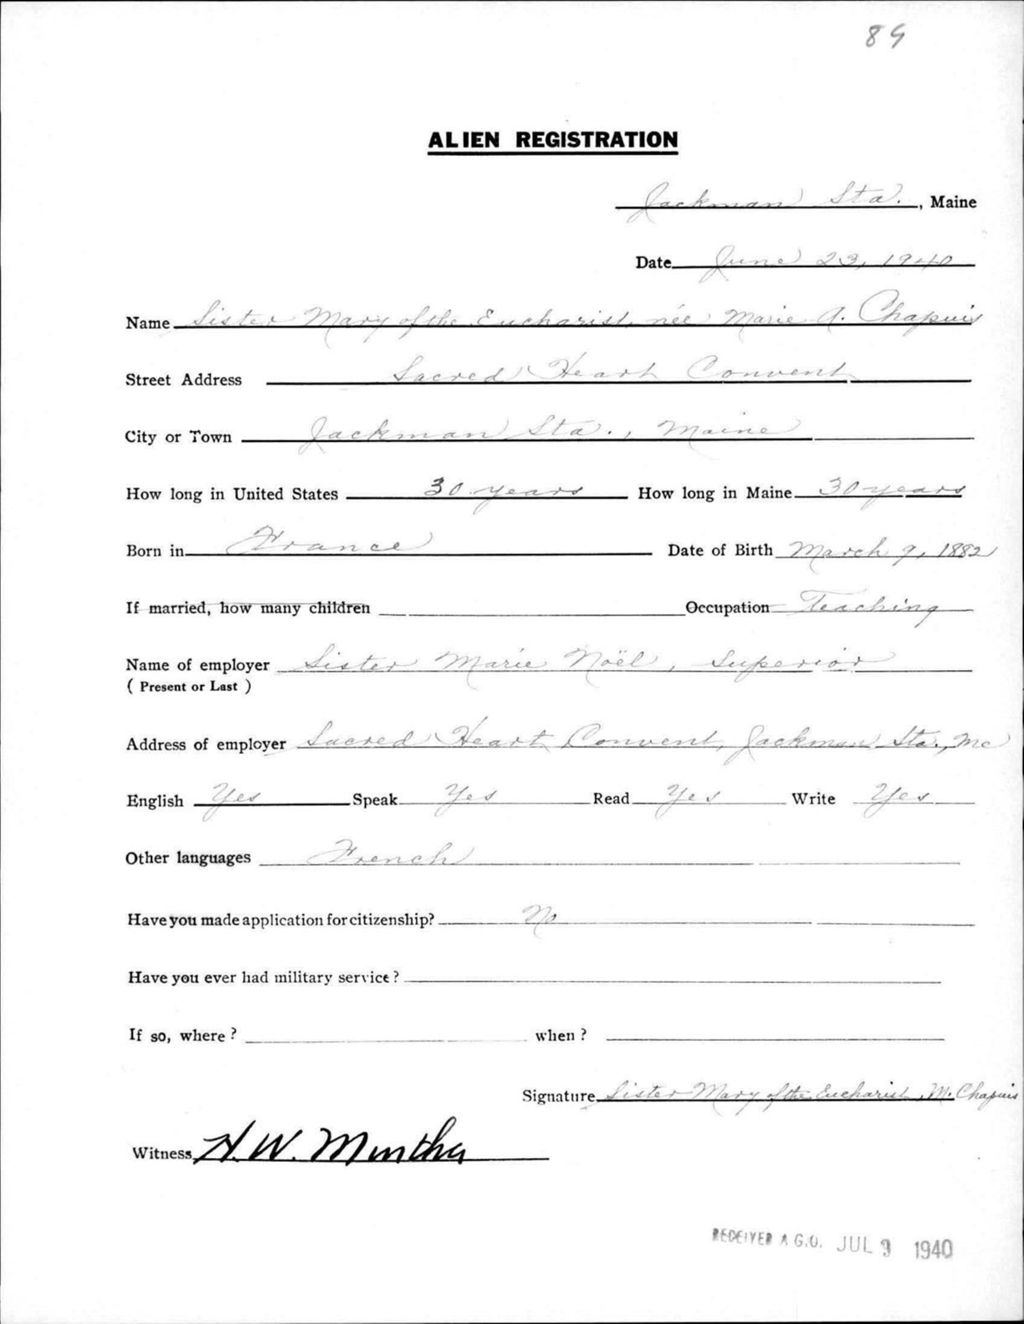 89
ALIEN REGISTRATION
Jackman Sta., Maine
Date June 23, 1940
Name Sister Mary of the Eucharist, née Marie A. Chapuis
Street Address Sacred Heart Convent
City or Town Jackman Sta., Maine
How long in United States 30 years How long in Maine 30 years
Born in France Date of Birth March 9, 1882
If married, how many children Occupation Teaching
Name of employer Sister Marie Noël, Superior
( Present or Last )
Address of employer Sacred Heart Convent, Jackman Sta., Me
English Yes Speak Yes Read Yes Write Yes
Other languages French
Have you made application for citizenship? No
Have you ever had military service?
If so, where? when?
Signature Sister Mary of the Eucharist, M. Chapuis
Witness H. W. Murtha
RECEIVED A.G.O. JUL 9 1940